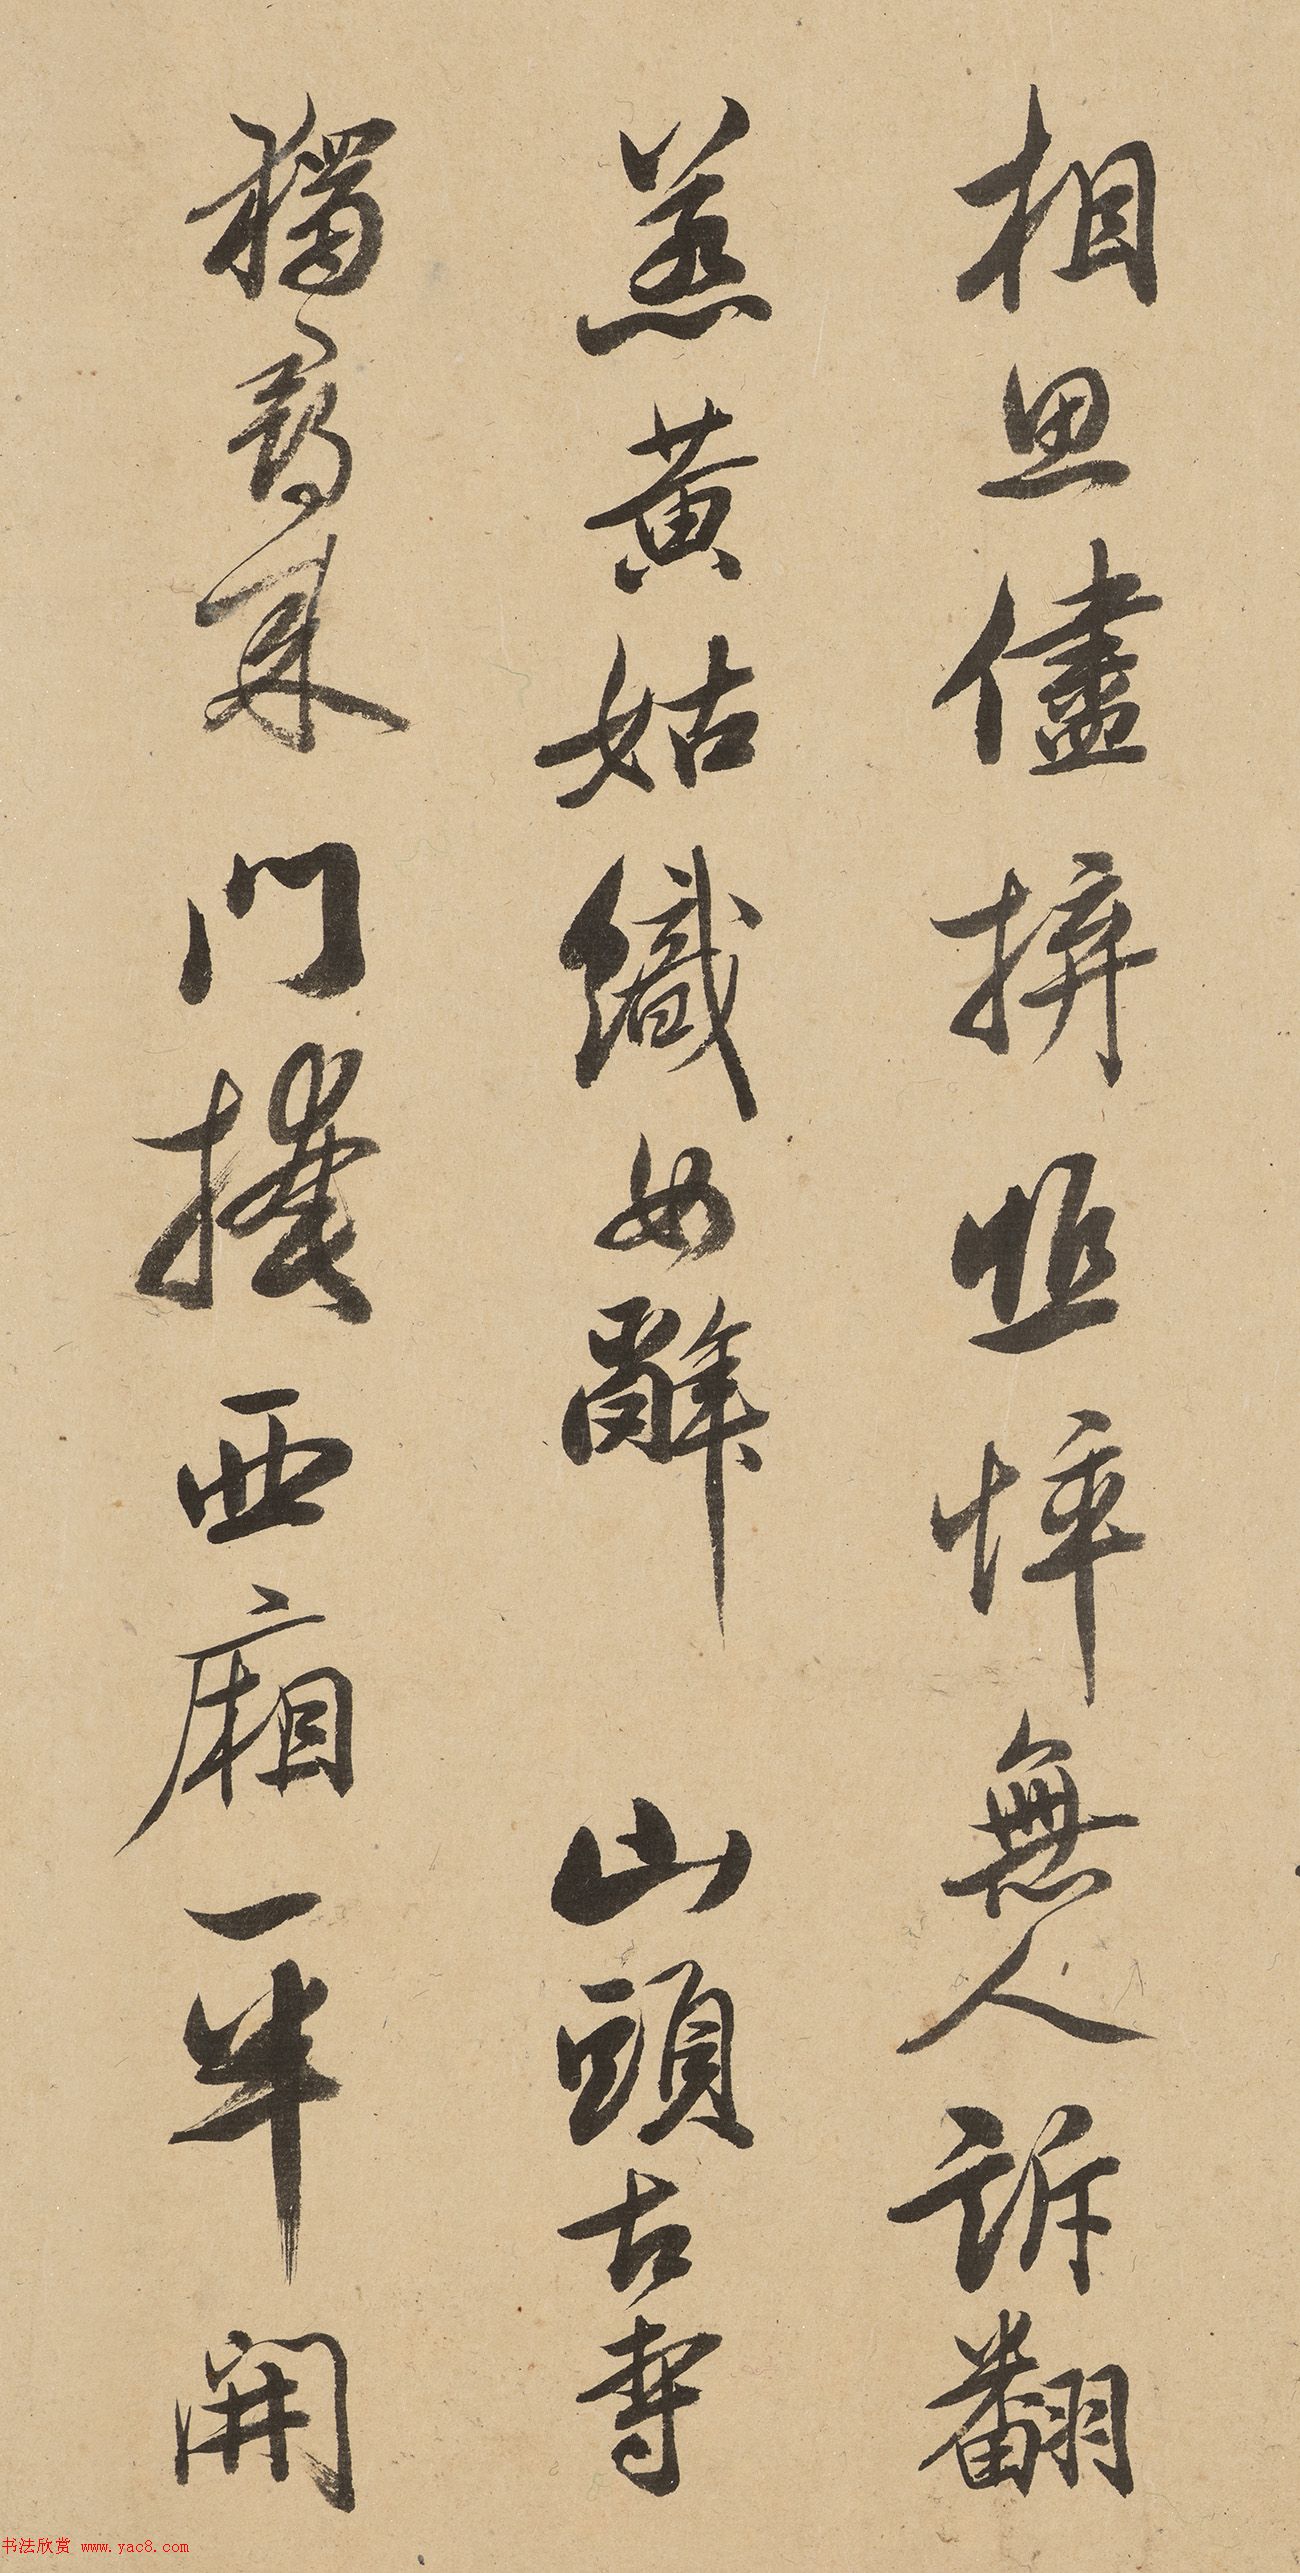 相思儘拚咀悴無人訴翻
羔黄姑織女辭　山頭古寺
獨尋來門掩西廂一半開
书法欣赏 www.yac8.com